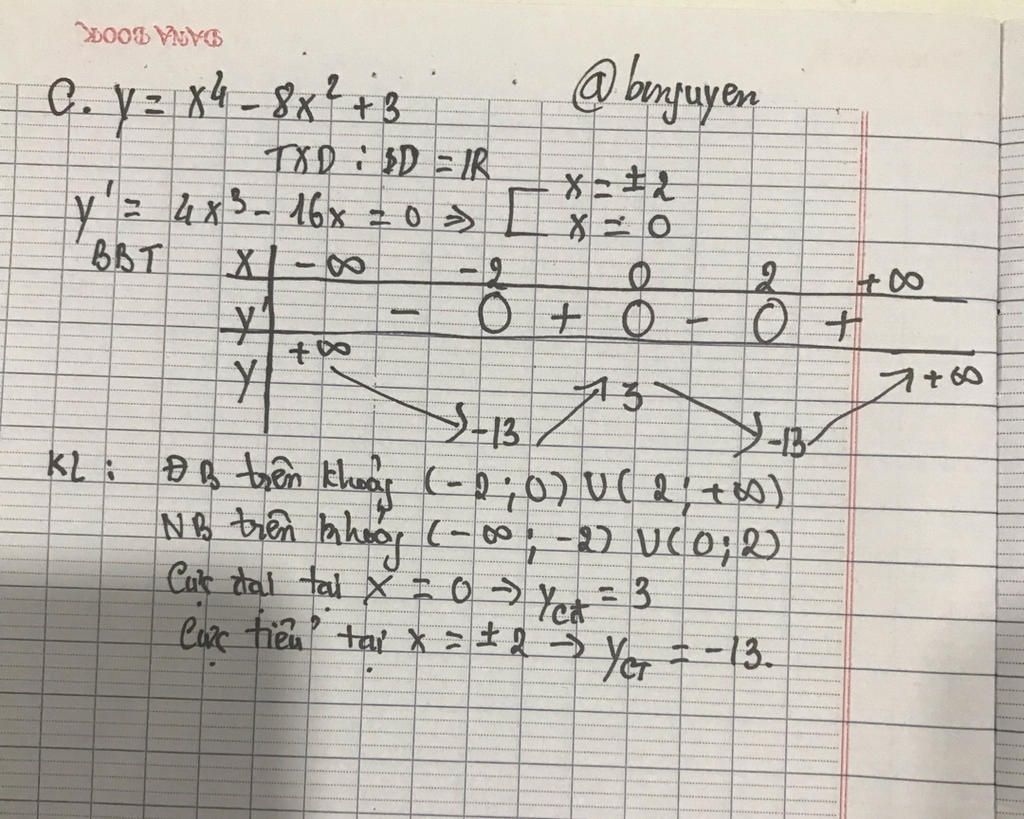 DANA BOOK
C. y = x⁴ - 8x² + 3 @bnnguyen
TXD : D = IR
y' = 4x³ - 16x = 0 => [ x = ±2
x = 0
BBT x -∞ -2 0 2 +∞
y' - 0 + 0 - 0 +
y +∞ -13 3 -13 +∞
KL : ĐB trên khoảng (-2 ; 0) U ( 2 ; +∞)
NB trên khoảng (-∞ ; -2) U (0 ; 2)
Cực đại tại x = 0 → yCĐ = 3
Cực tiểu tại x = ±2 → yCT = -13.